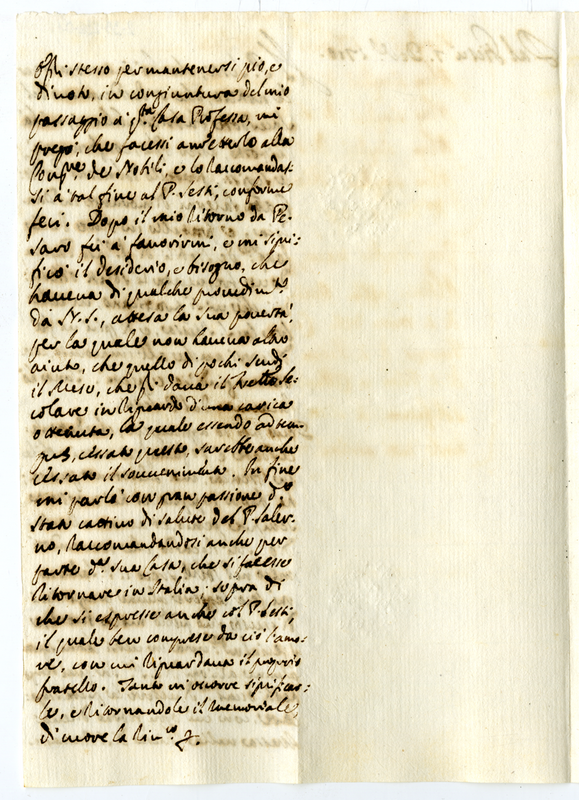 Egli stesso per mantenersi pio, e
divoto, in congiuntura del mio
passaggio a q.ta Casa Professa, mi
pregò, che facessi ametterlo alla
Cong.ne de Nobili, e lo Raccomandas:
si a tal fine al P. Sesti, conforme
feci. Dopo il mio Ritorno da Pe:
saro fù a favorirmi, e mi signi:
ficò il desiderio, e bisogno, che
haveva di qualche provedim.to
da N. S., attesa la sua povertà,
per la quale non haveva altro
aiuto, che quello di pochi scudi
il Mese, che gli dava il fratello se:
colare in riguardo d'una carica
ottenuta, la quale essendo ad tem:
pus, cessato questo, sarebbe anche
cessato il sovvenimento. In fine
mi parlò con gran passione d.o
stato cattivo di salute del P. Saler:
no, Raccomandandosi anche per
parte d.a sua Casa, che si facesse
Ritornare in Italia; sopra di
che si espresse anche col P. Sesti,
il quale ben comprese da ciò l'amo:
re, con cui Riguardava il proprio
fratello. Tanto mi occorre significar:
le, e Ritornandole il Memoriale,
di cuore la Riv.o